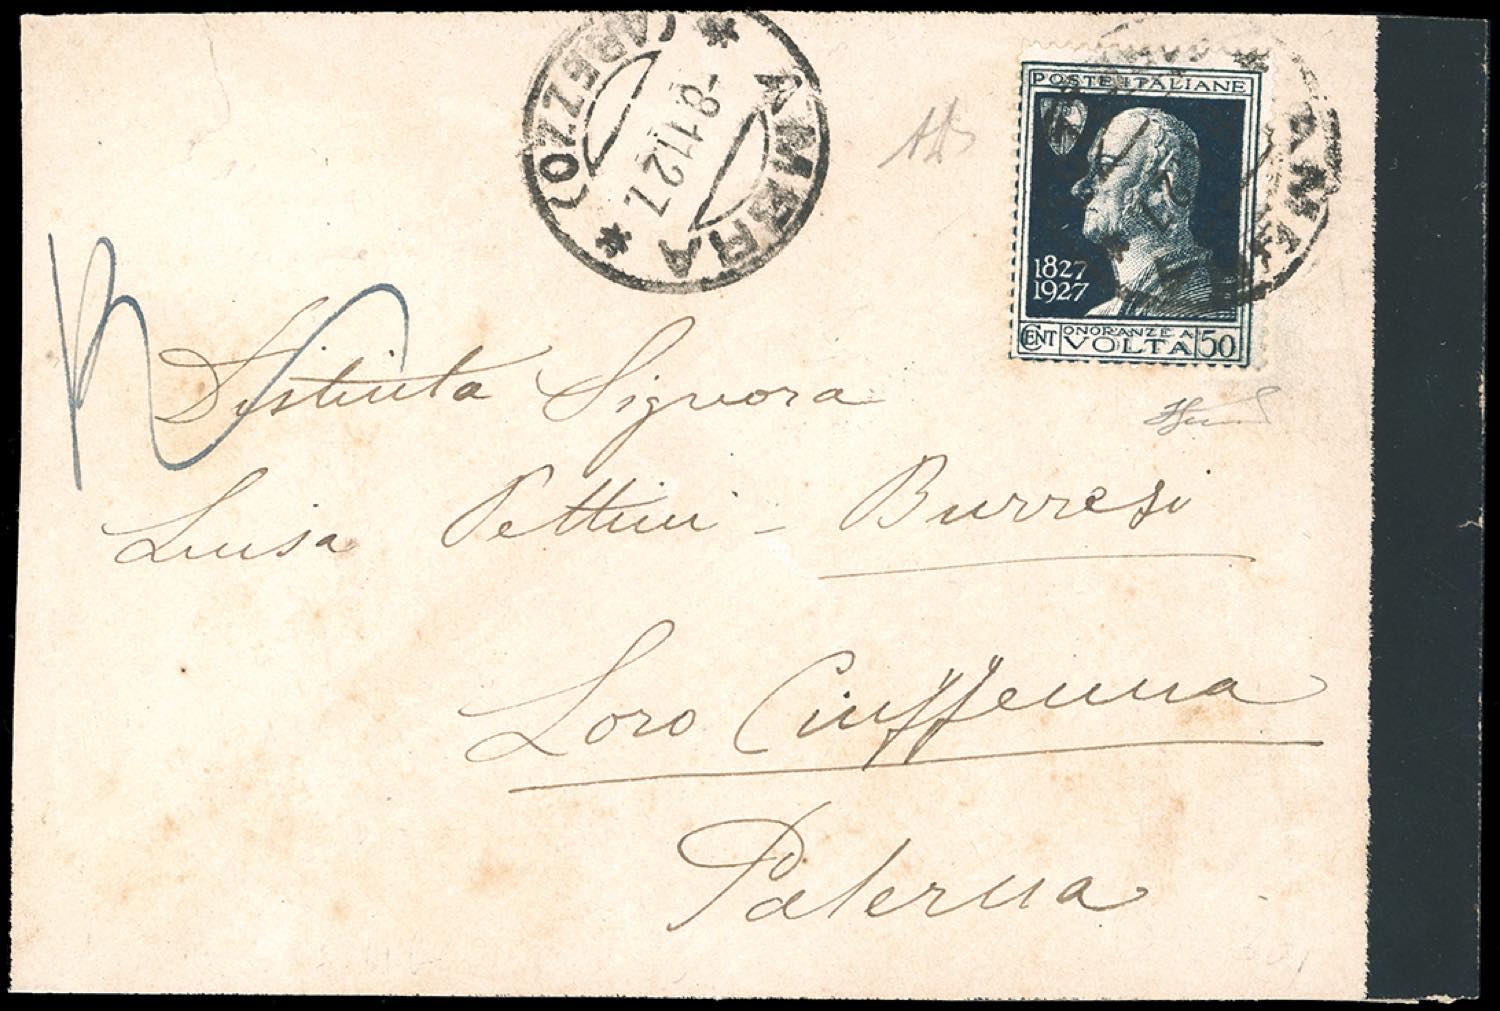 AMBRA
(AREZZO)
-8.11.27.
POSTE ITALIANE
1827
1927
CENT ONORANZE A VOLTA 50
AMB
Distinta Signora
Luisa Pettini - Burresi
Loro Ciuffenna
Paterna